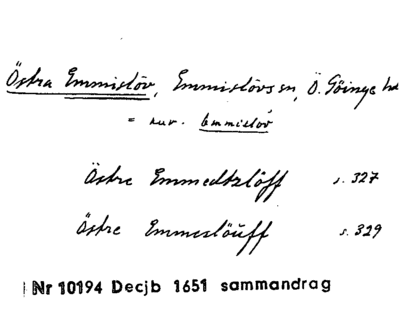 Östra Emmislöv, Emmislövs sn, Ö. Göinge hd
= nuv. Emmislöv
Östre Emmedtzlöff s. 327
Östre Emmeslöuff s. 329
Nr 10194 Decjb 1651 sammandrag